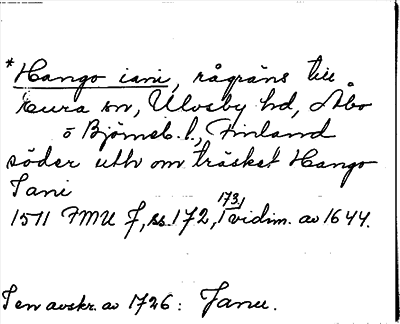 *Hango iani, rågräns till
Eura sn, Ulvsby hd, Åbo
o Björneb. l., Finland
söder uth om träsket Hango
Iani
1511 FMU 7, ss. 172, 173, vidim. av 1644.
I en avskr. av 1726: Janu.